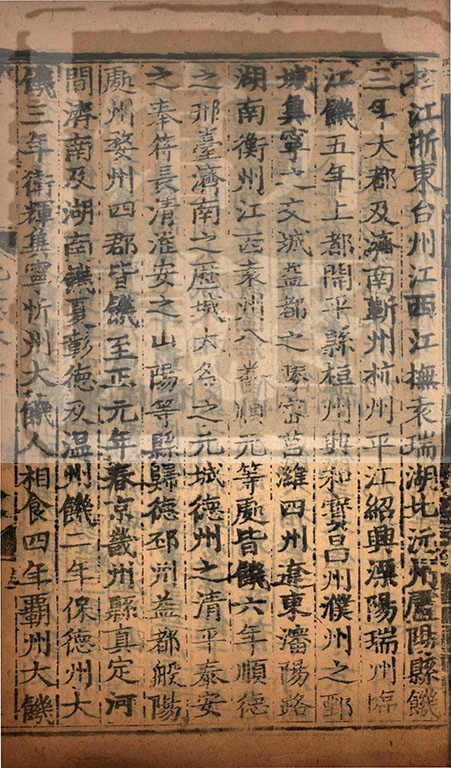 松江浙東台州江西江撫袁瑞湖北沅州盧陽縣饑
三年大都及濟南蘄州杭州平江紹興溧陽瑞州臨
江饑五年上都開平縣桓州興和寶昌州濮州之鄄
城冀寧之交城益都之膠密莒濰四州遼東瀋陽路
湖南衡州江西袁州八番順元等處皆饑六年順德
之邢臺濟南之歷城大名之元城德州之清平泰安
之奉符長清淮安之山陽等縣歸德邳州益都般陽
處州婺州四郡皆饑至正元年春京畿州縣真定河
間濟南及湖南饑夏彰德及温州饑二年保德州大
饑三年衛輝冀寧忻州大饑人相食四年霸州大饑